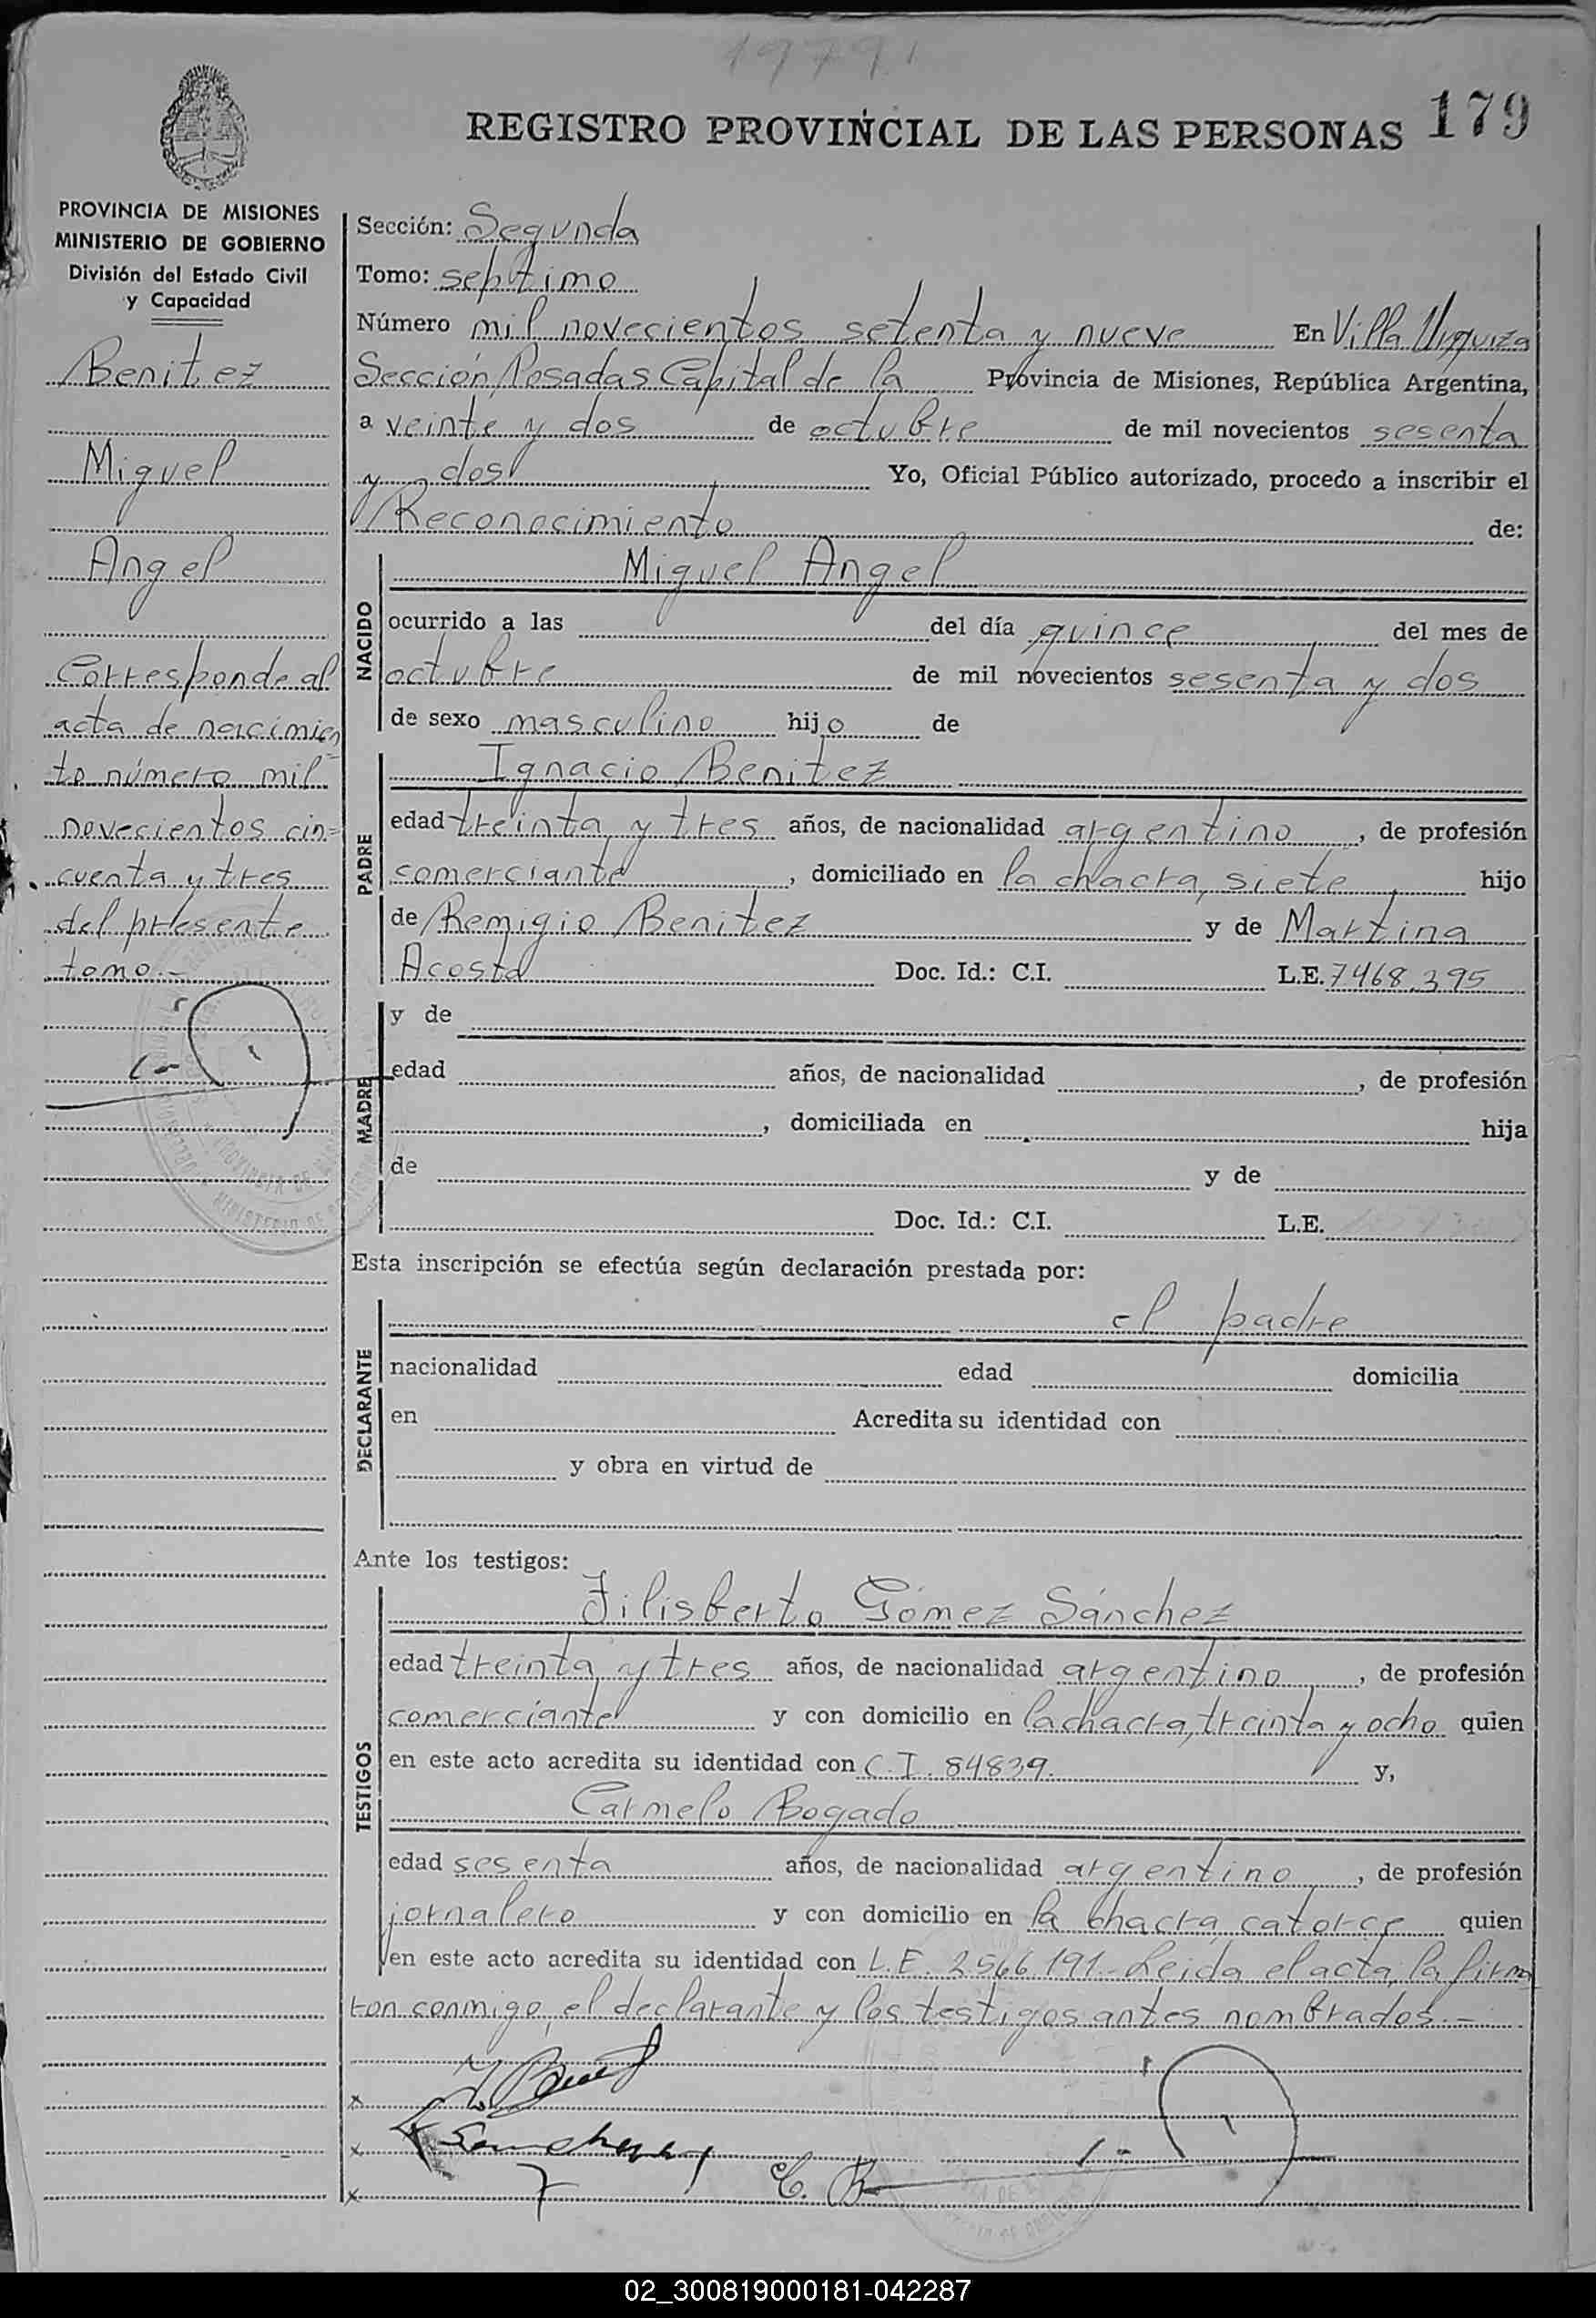 1979
179
REGISTRO PROVINCIAL DE LAS PERSONAS
PROVINCIA DE MISIONES
MINISTERIO DE GOBIERNO
División del Estado Civil
y Capacidad
Benitez
Miguel
Angel
Corresponde al
acta de nacimien
to número mil
novecientos cin=
cuenta y tres
del presente
tomo.-
Sección: Segunda
Tomo: septimo
Número mil novecientos setenta y nueve En Villa Urquiza
Sección Posadas Capital de la Provincia de Misiones, República Argentina,
a veinte y dos de octubre de mil novecientos sesenta
y dos Yo, Oficial Público autorizado, procedo a inscribir el
Reconocimiento de:
NACIDO
Miguel Angel
ocurrido a las del día quince del mes de
octubre de mil novecientos sesenta y dos
de sexo masculino hijo de
PADRE
Ignacio Benitez
edad treinta y tres años, de nacionalidad argentino, de profesión
comerciante, domiciliado en la chacra, siete hijo
de Remigio Benitez y de Martina
Acosta Doc. Id.: C.I. L.E. 7468.395
MADRE
y de
edad años, de nacionalidad , de profesión
, domiciliada en hija
de y de
Doc. Id.: C.I. L.E.
Esta inscripción se efectúa según declaración prestada por:
DECLARANTE
el padre
nacionalidad edad domicilia
en Acredita su identidad con
y obra en virtud de
Ante los testigos:
TESTIGOS
Filisberto Gómez Sánchez
edad treinta y tres años, de nacionalidad argentino, de profesión
comerciante y con domicilio en la chacra, treinta y ocho quien
en este acto acredita su identidad con C.I. 84839. y,
Carmelo Bogado
edad sesenta años, de nacionalidad argentino, de profesión
jornalero y con domicilio en la chacra catorce quien
en este acto acredita su identidad con L.E. 2566.191.- Leida el acta, la firma
ron conmigo, el declarante y los testigos antes nombrados.-
x
x
x C. B
02_300819000181-042287